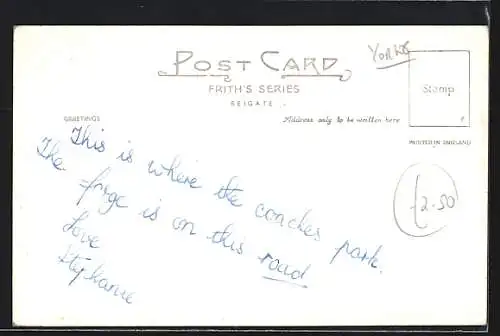 POST CARD
FRITH'S SERIES
REIGATE
YORKS
Stamp
GREETINGS
Address only to be written here
PRINTED IN ENGLAND
This is where the coaches park.
The forge is on this road
Love
Stephanie
£2-50